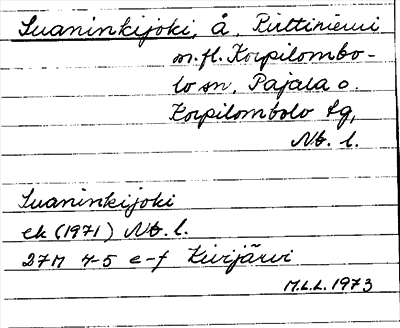 Suaninkijoki, å, Pirttiniemi
m.fl. Korpilombo-
lo sn, Pajala o.
Korpilombolo tg,
Nb. l.
Suaninkijoki
ek (1971) Nb. l.
27M 4-5 e-f Kivijärvi
M.L.L. 1973